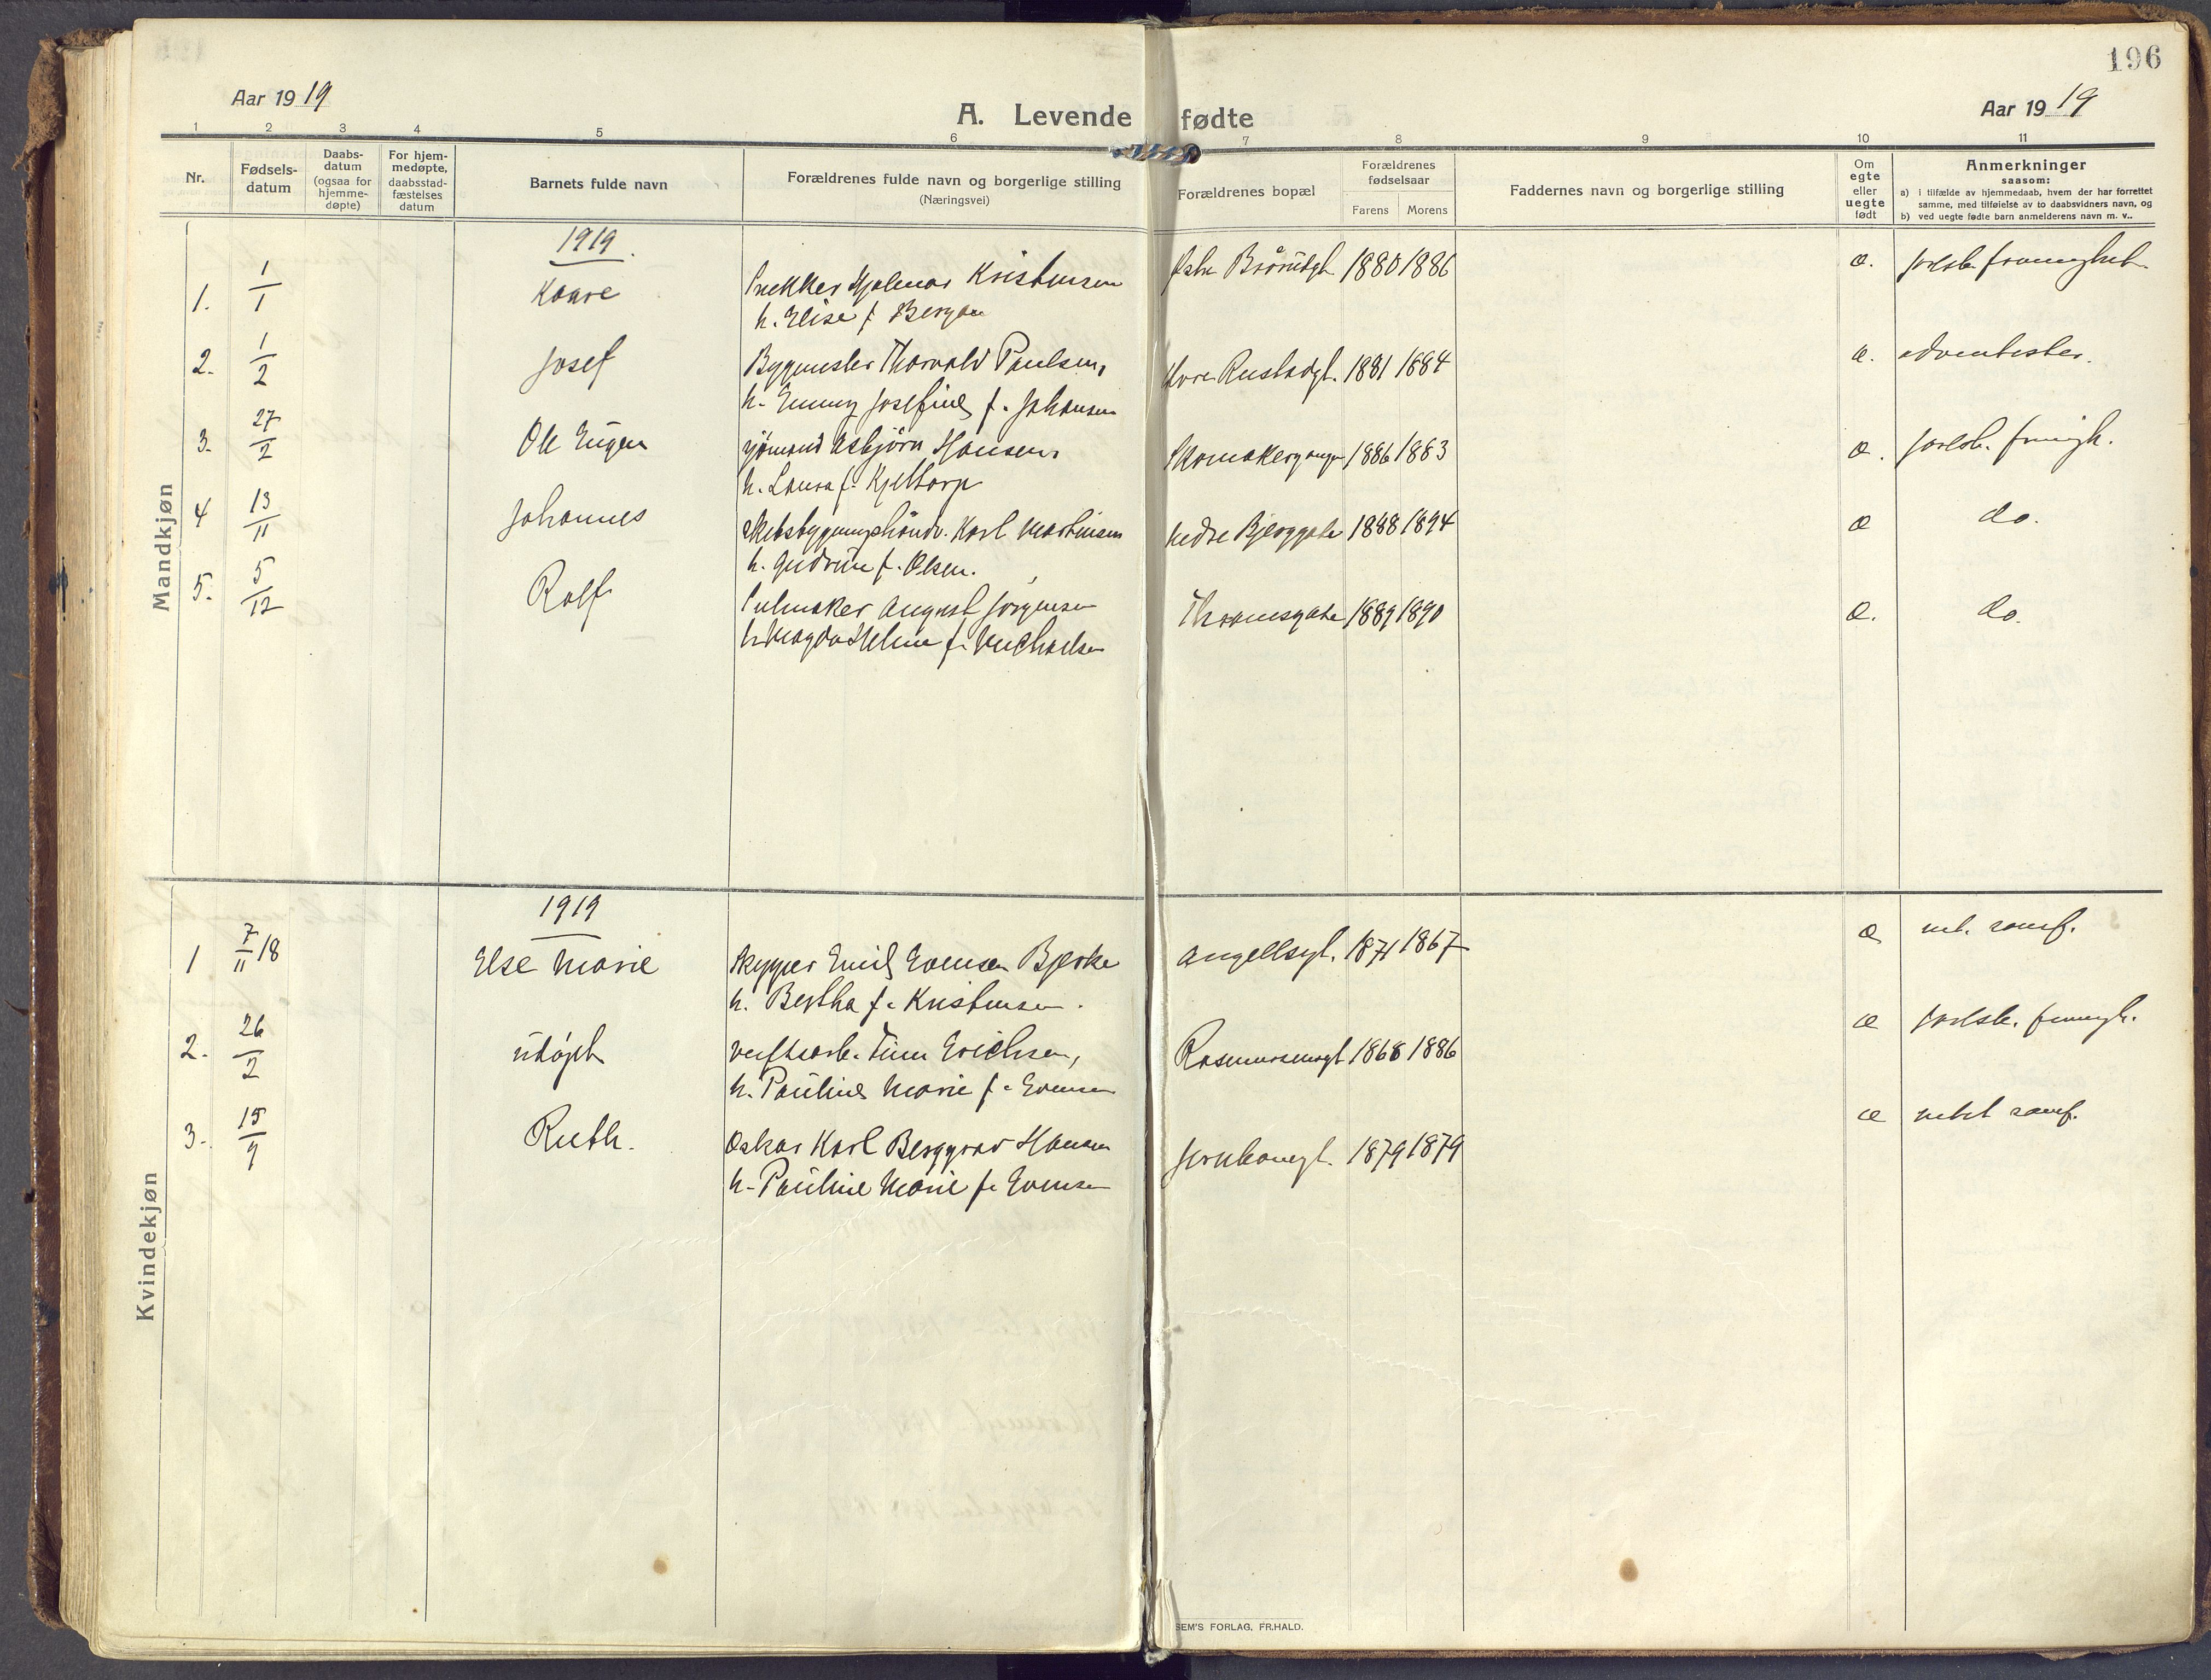 196
Aar 19 19
A. Levende fødte
Aar 19 19
1 2 3 4 5 6 7 8 9 10 11
Nr.
Fødsels-
datum
Daabs-
datum
(ogsaa for
hjemme-
døpte)
For hjem-
medøpte,
daabsstad-
fæstelses
datum
Barnets fulde navn
Forældrenes fulde navn og borgerlige stilling
(Næringsvei)
Forældrenes bopæl
Forældrenes
fødselsaar
Farens Morens
Faddernes navn og borgerlige stilling
Om
egte
eller
uegte
født
Anmerkninger
saasom:
a) i tilfælde av hjemmedaab, hvem der har forrettet
samme, med tilføielse av to daabsvidners navn, og
b) ved uegte fødte barn anmelderens navn m. v..
Mandkjøn
1919.
1. 1/1 Kaare Snekker Hjalmar Kristensen 1880 1886 æ.
h. Elise f. Bergan
2. 1/2 Josef Bygmester Thorvald Paulsen, 1881 1884 æ. adventister.
h. Emmy Josefine f. Johansen
3. 27/2 Ole Eugen sjømand Asbjörn Hansen, Skomakergangen 1886 1883 æ.
h. Laura f. Kjeltorp
4 13/11 Johannes Karl Martinsen nedre Bjerggate 1888 1894 æ do.
h. Gudrun f. Olsen.
5. 5/12 Rolf August Jörgensen Thranesgate 1889 1890 æ. do.
h. Magda Helene f. Michaelsen
Kvindekjøn
1919
1 7/11 18 Else Marie Skipper Emil Evensen Bjerke Angellsgt. 1871 1867 æ met. samf.
h. Bertha f. Kristensen.
2. 26/2 udøpt verftsarb. Erichsen, 1868 1886 æ
h. Pauline Marie f. Evensen
3. 15/9 Ruth. Oskar Karl Berggrav Hansen 1879 1879 æ samf.
h. Pauline Marie f. Evensen
SEM'S FORLAG, FR.HALD.